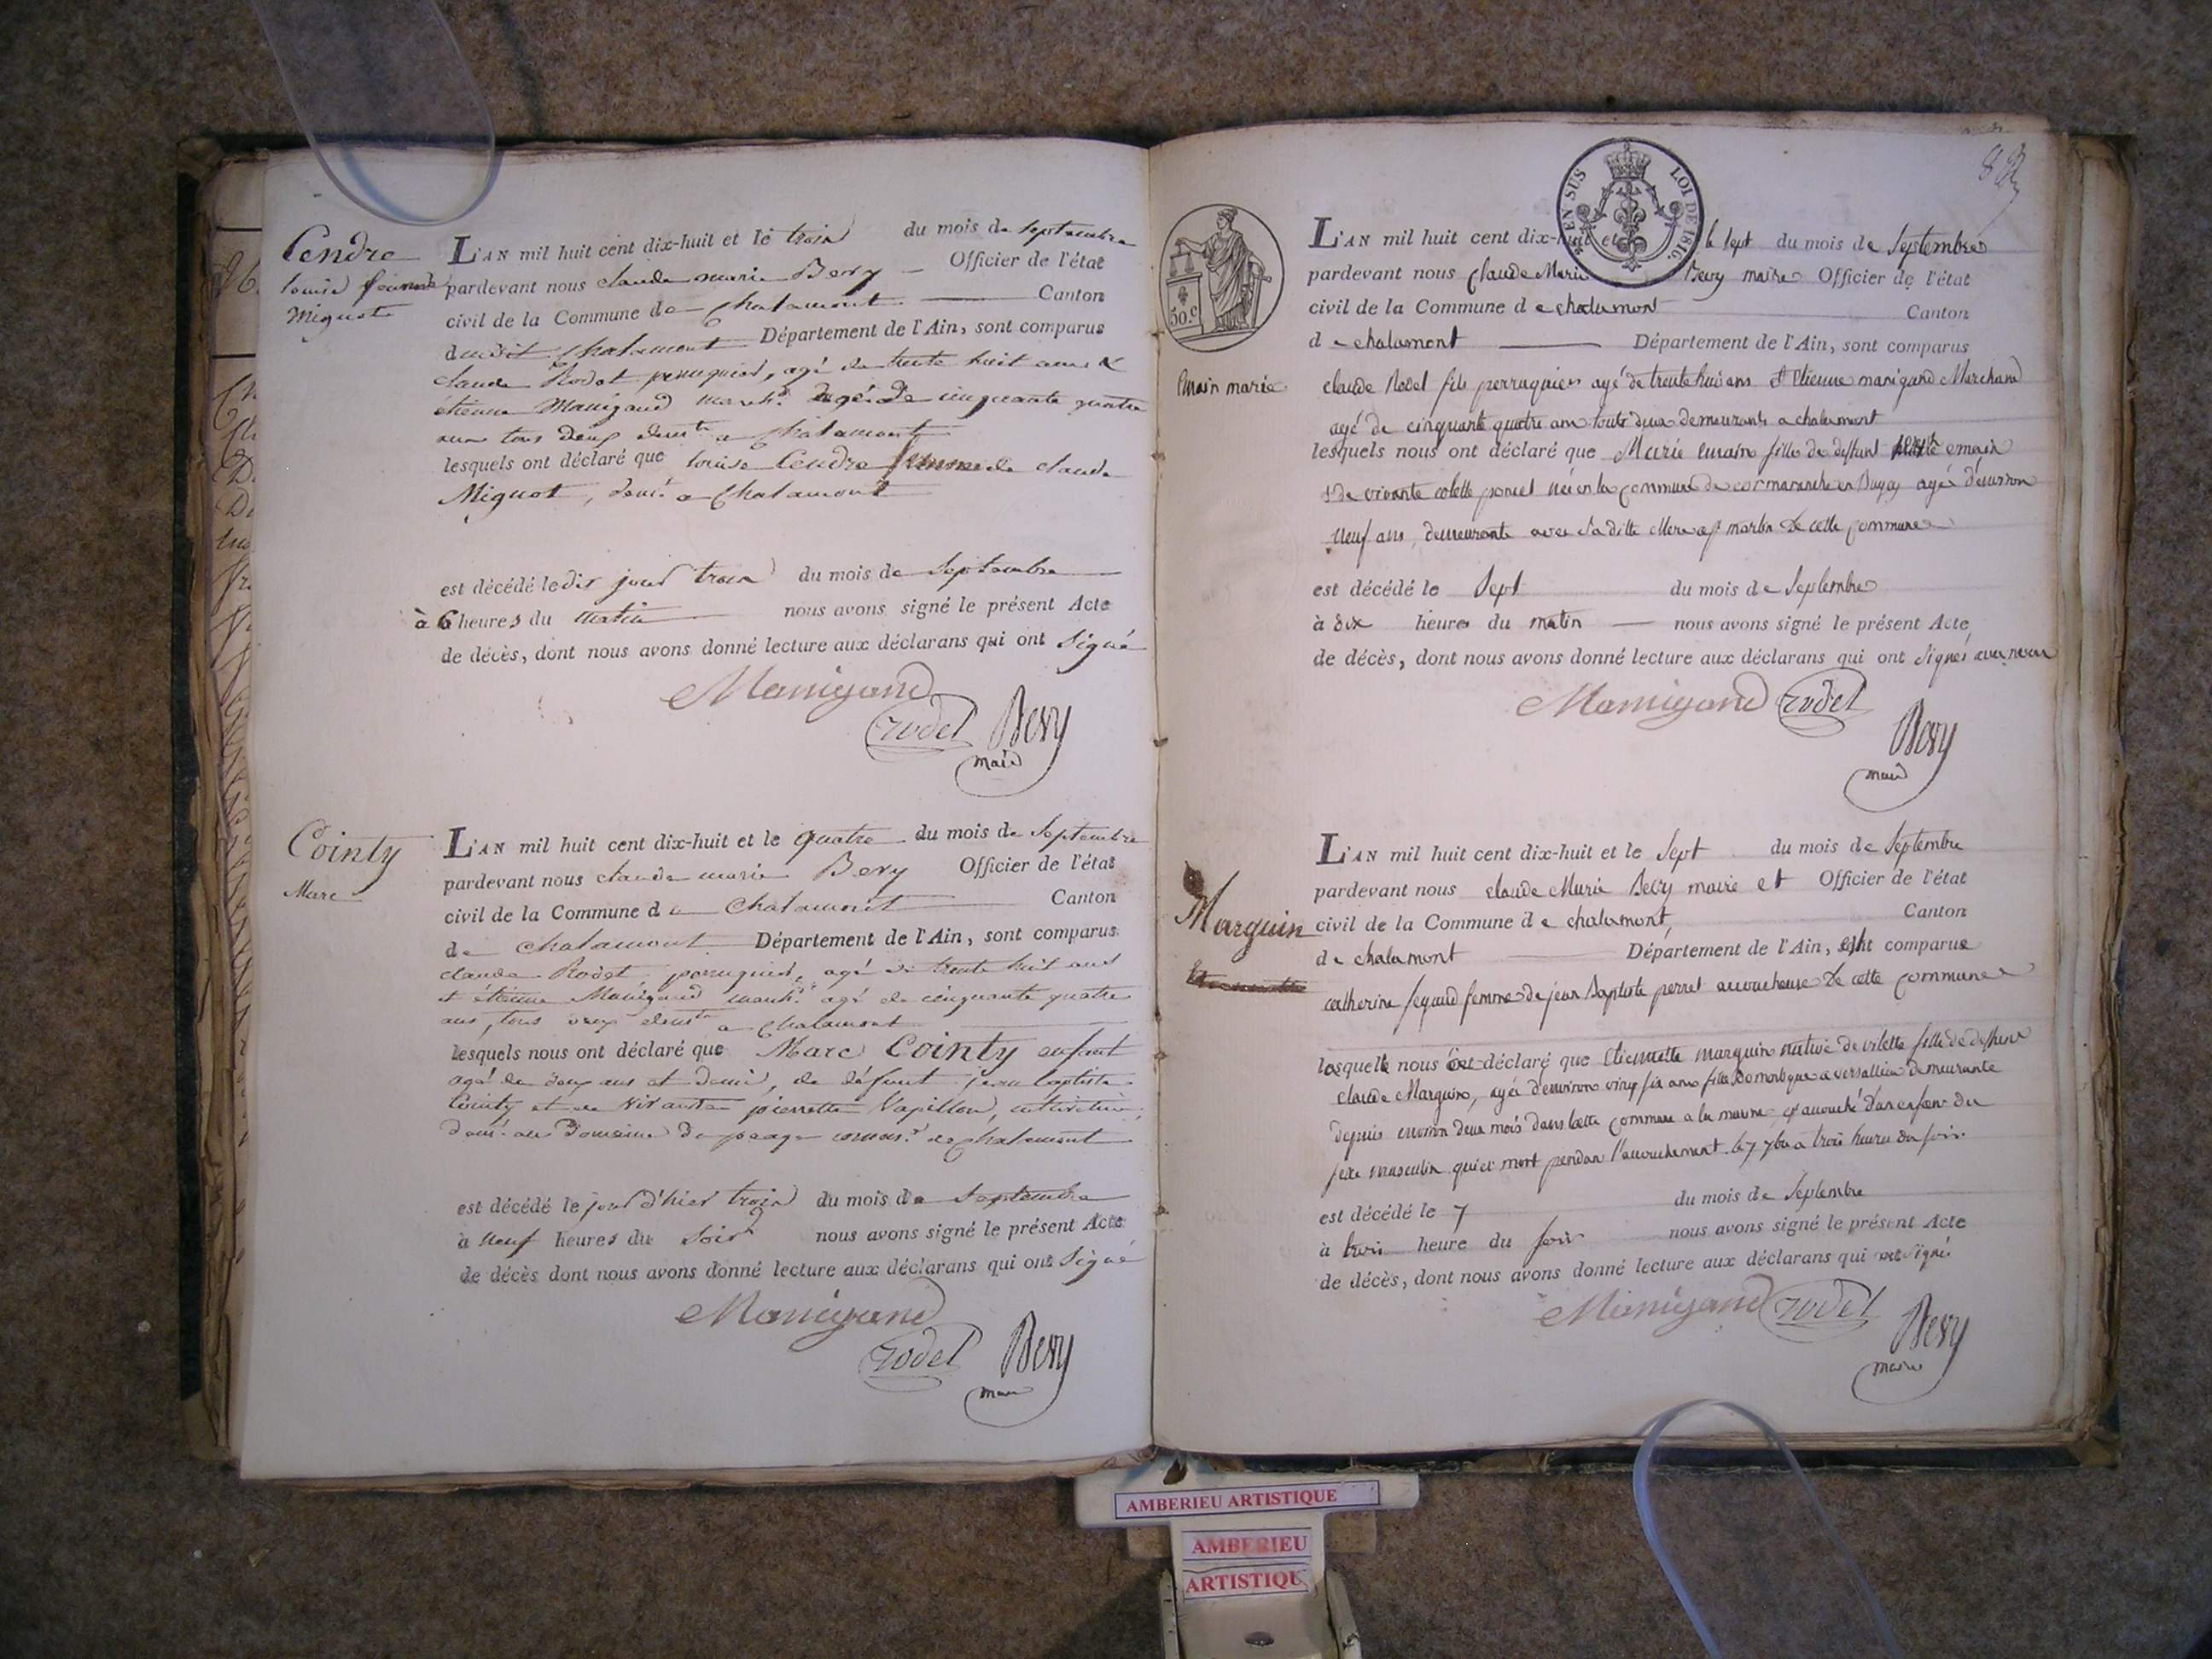 Cendre
louise femme
Miguot
L'AN mil huit cent dix-huit et le trois du mois de septembre
pardevant nous claude marie Bevy Officier de l'état
civil de la Commune de Chalamont Canton
dudit Chalamont Département de l'Ain, sont comparus
claude Rodet perruquier, agé de trente huit ans &
étienne Manigand march.d agé de cinquante quatre
ans tous deux demts a Chalamont
lesquels ont déclaré que louise Cendre femme de claude
Miguot, demt a Chalamont
est décédé le dit jour trois du mois de Septembre
à 6 heures du matin nous avons signé le présent Acte
de décès, dont nous avons donné lecture aux déclarans qui ont signé
Manigand
rodet Bevy
maire
Cointy
Marc
L'AN mil huit cent dix-huit et le quatre du mois de Septembre
pardevant nous claude marie Bevy Officier de l'état
civil de la Commune de Chalamont Canton
de Chalamont Département de l'Ain, sont comparus
claude Rodet perruquier, agé de trente huit ans
et étienne Manigand march.d agé de cinquante quatre
ans, tous deux demts a Chalamont
lesquels nous ont déclaré que Marc Cointy enfant
agé de deux ans et demi, de défunt jean baptiste
Cointy et de vivante pierrette Vapillon,
demt au Domaine du peage de Chalamont
est décédé le jour d'hier trois du mois de Septembre
à neuf heures du soir nous avons signé le présent Acte
de décès dont nous avons donné lecture aux déclarans qui ont signé
Manigand
rodet Bevy
maire
EN SUS LOI DE 1816.
50.c
L'AN mil huit cent dix-huit et le sept du mois de Septembre
pardevant nous Claude Marie Bevy maire Officier de l'état
civil de la Commune de chalamont Canton
de chalamont Département de l'Ain, sont comparus
Emain marie
claude Rodet fils perruquier agé de trente huit ans Et Etienne manigand Marchand
agé de cinquante quatre ans toute deux demeurants a chalamont
lesquels nous ont déclaré que Marie emain fille de deffunt emain
& de vivante colette poncet née en la commune de cormaranche en Bugey agée d'environ
neuf ans, demeurante avec sa ditte Mere martin de cette commune
est décédé le Sept du mois de Septembre
à dix heures du matin nous avons signé le présent Acte
de décès, dont nous avons donné lecture aux déclarans qui ont signés avec nous
Manigand rodet
Bevy
maire
Marguin
L'AN mil huit cent dix-huit et le Sept du mois de Septembre
pardevant nous claude Marie Bevy maire et Officier de l'état
civil de la Commune de chalamont, Canton
de chalamont Département de l'Ain, est comparue
catherine seguid femme de jean Baptiste perret accoucheuse de cette commune
lesquelle nous a déclaré que Etiennette marguin native de vilette fille de deffunt
claude Marguin, agée d'environ vingt six ans fille domestique a versallieu demeurante
depuis environ deux mois dans cette commune a la maine, et accouché d'un enfant du
sexe masculin qui est mort pendan l'accouchement le 7 7bre a trois heures du soir
est décédé le 7 du mois de Septembre
à trois heure du soir nous avons signé le présent Acte
de décès, dont nous avons donné lecture aux déclarans qui ont signés
Manigand rodet
Bevy
maire
AMBERIEU ARTISTIQUE
AMBERIEU
ARTISTIQU